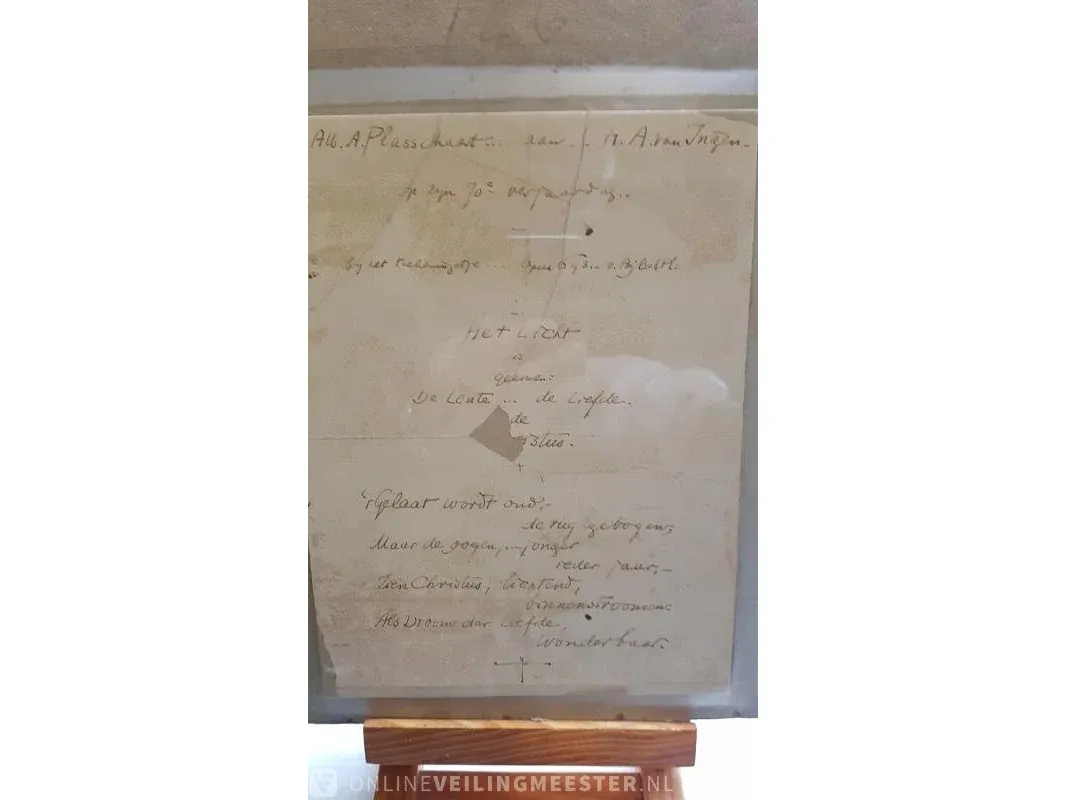 Alb. A. Plasschaert... aan... H. A. van Ingen.
op zijn 70e verjaardag...
bij het teekeningetje .... opus
Het Licht
is
gekomen:
De Lente ... de Liefde.
de
istus.
't Gelaat wordt oud,-
de rug gebogen;
Maar de oogen,... jonger
ieder jaar,-
Zien Christus, lichtend,
binnenstroomen:
Als Droom der Liefde,
wonderbaar.
ONLINEVEILINGMEESTER.NL